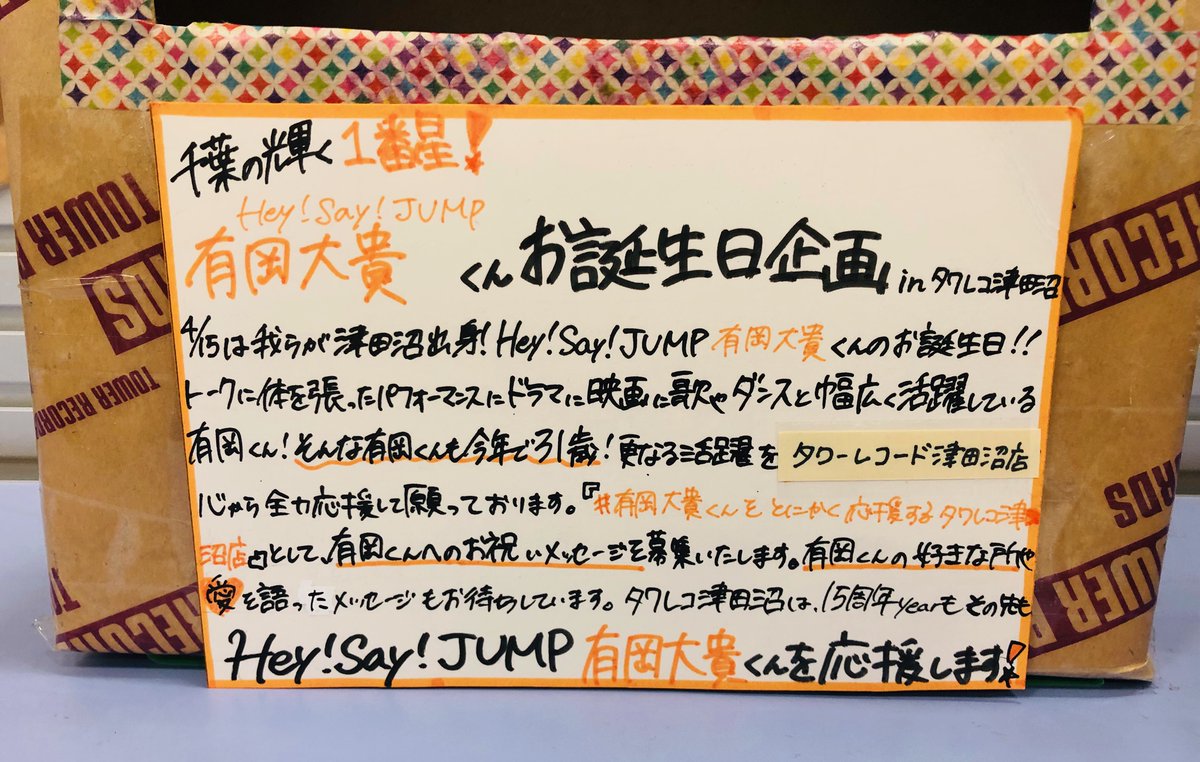 千葉の輝く1番星!
Hey!Say!JUMP
有岡大貴くんお誕生日企画inタワレコ津田沼
4/15は我らが津田沼出身!Hey!Say!JUMP有岡大貴くんのお誕生日!!
トークに体を張ったパフォーマンスにドラマに映画に歌やダンスと幅広く活躍している
有岡くん!そんな有岡くんも今年で31歳!更なる活躍をタワーレコード津田沼店
じゃら全力応援して願っております。『#有岡大貴くんをとにかく応援するタワレコ津田
沼店』として、有岡くんへのお祝いメッセージを募集いたします。有岡くんの好きな所や
愛を語ったメッセージもお待ちしています。タワレコ津田沼は、15周年yearもその先も
Hey!Say!JUMP有岡大貴くんを応援します!
TOWER RECORDS
TOWER RECORDS
RECORDS
TOWER RECORDS